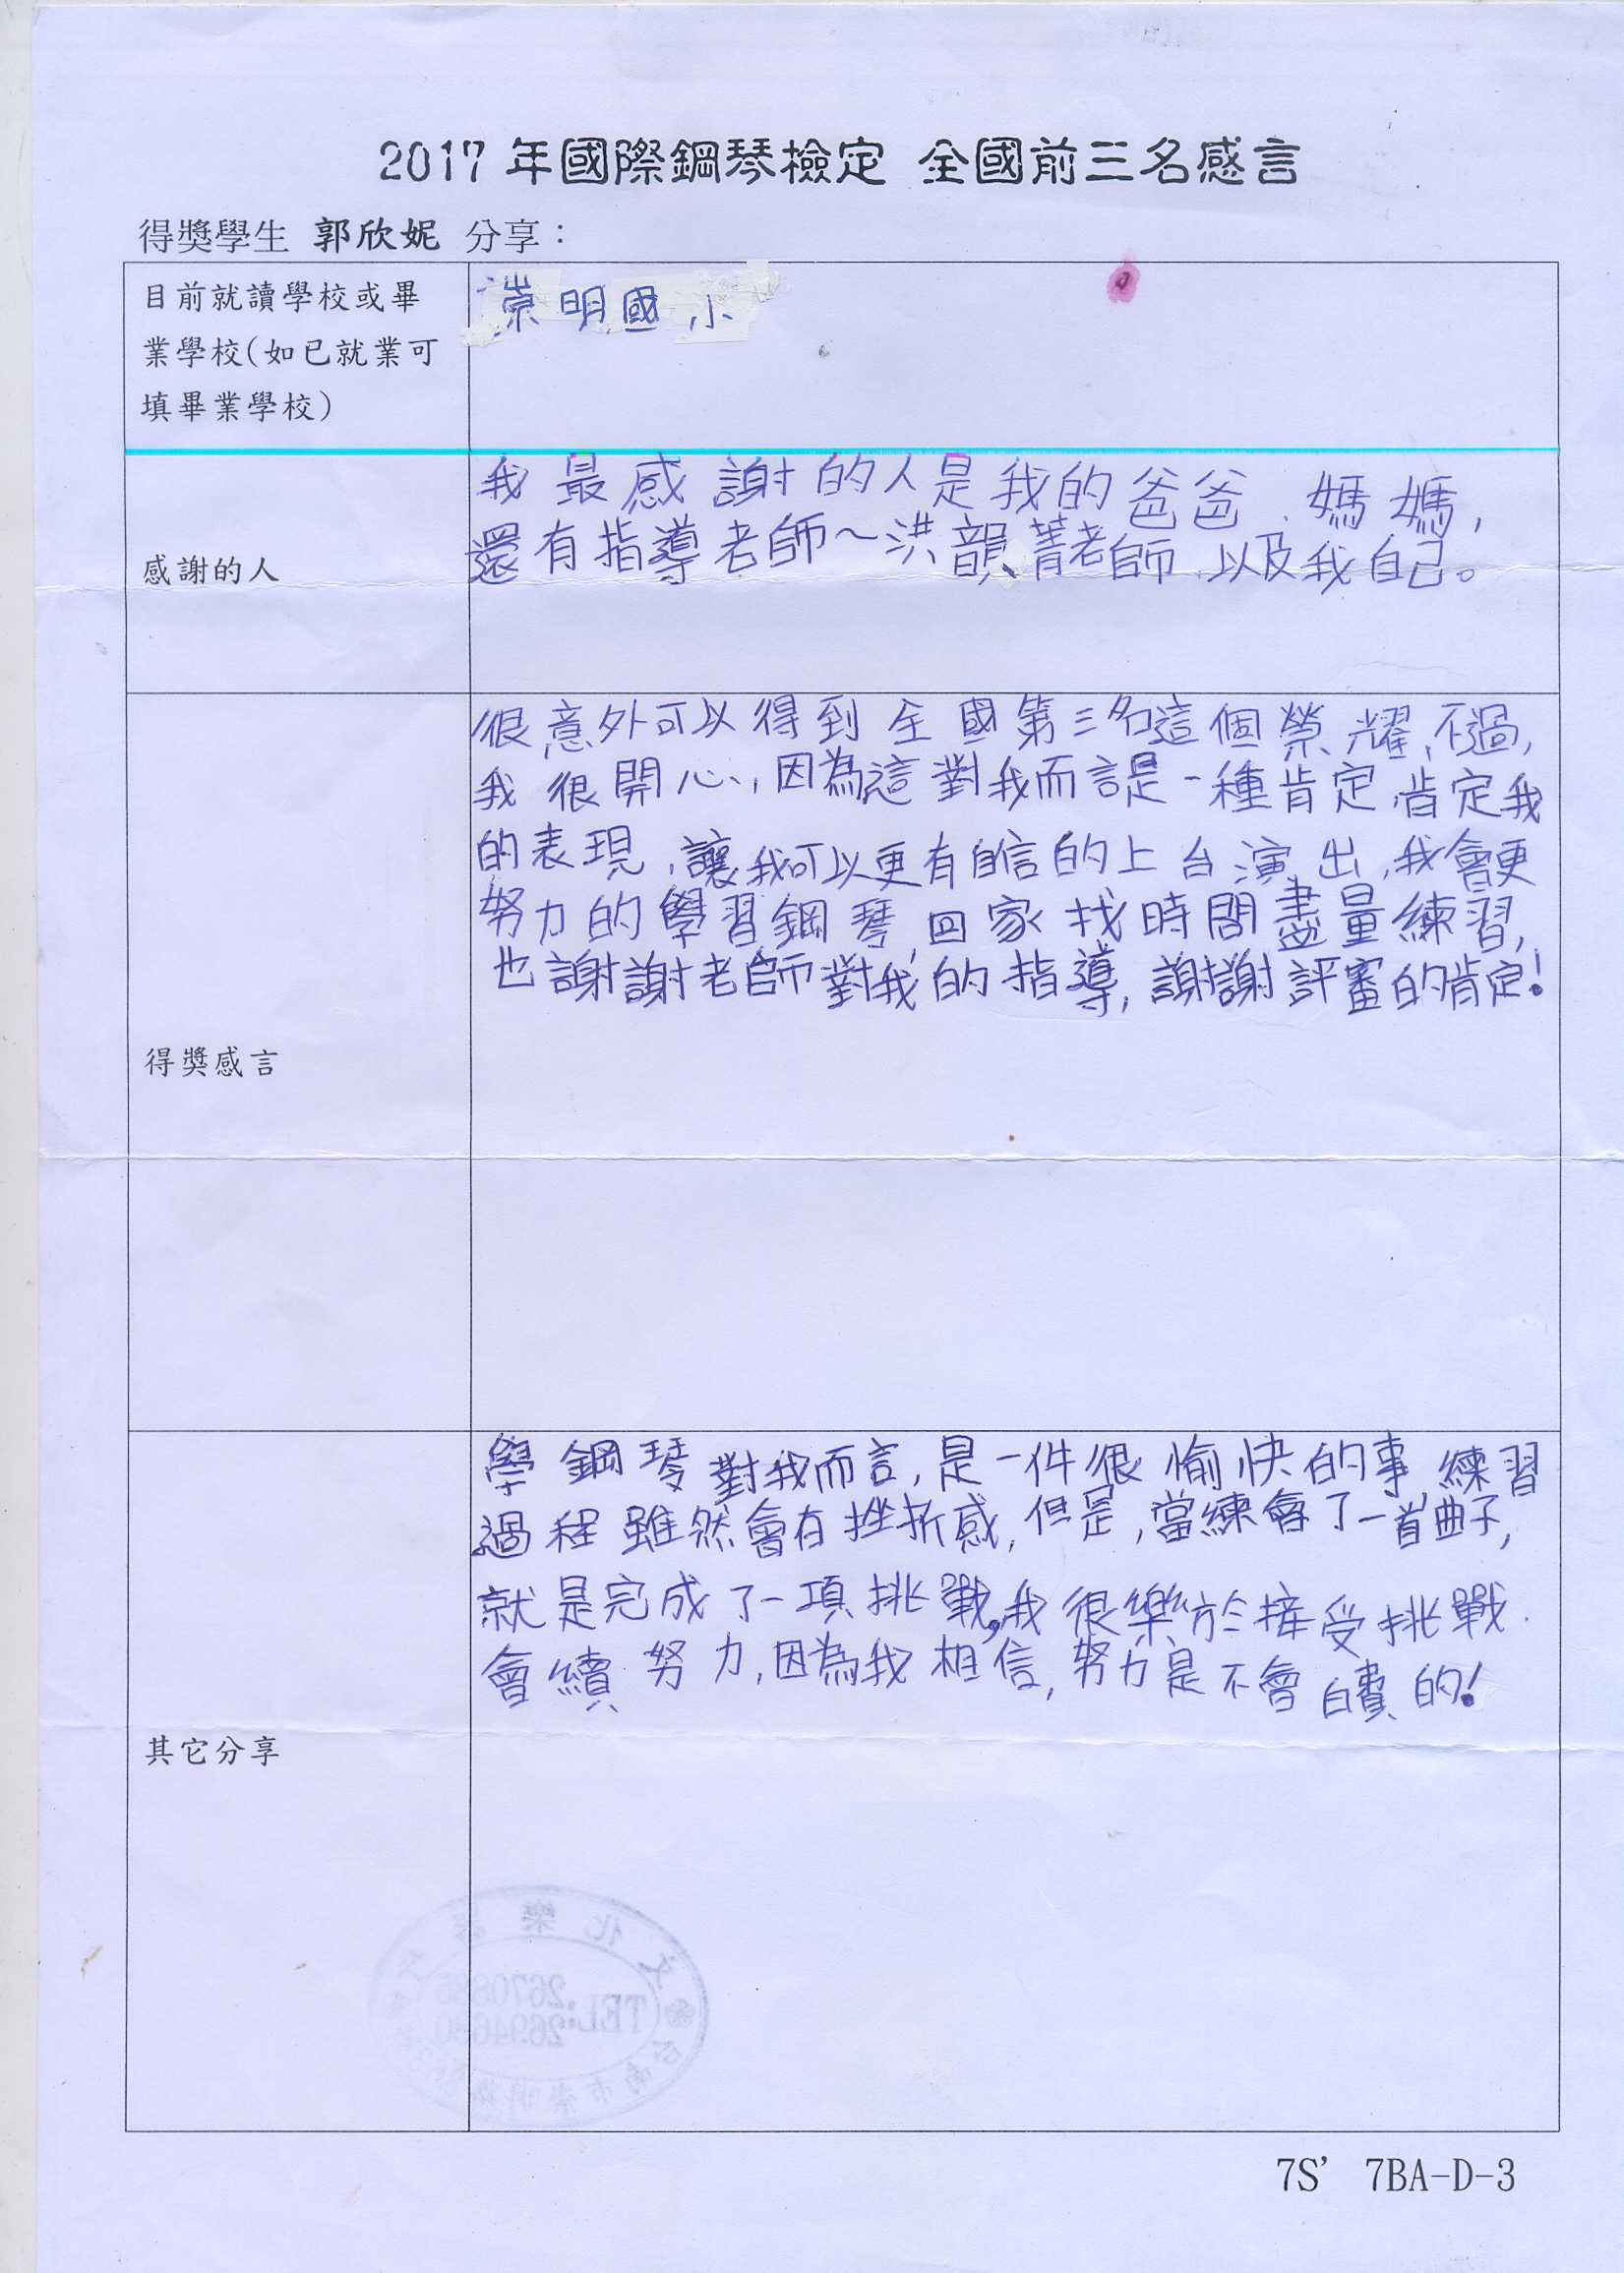 2017年國際鋼琴檢定 全國前三名感言
得獎學生 郭欣妮 分享：
目前就讀學校或畢
業學校(如已就業可
填畢業學校)
崇明國小
感謝的人
我最感謝的人是我的爸爸、媽媽,
還有指導老師～洪韻菁老師、以及我自己。
得獎感言
很意外可以得到全國第三名這個榮耀,不過,
我很開心,因為這對我而言是一種肯定,肯定我
的表現,讓我可以更有自信的上台演出,我會更
努力的學習鋼琴,回家找時間盡量練習,
也謝謝老師對我的指導,謝謝評審的肯定!
其它分享
學鋼琴對我而言,是一件很愉快的事,練習
過程雖然會有挫折感,但是,當練會了一首曲子,
就是完成了一項挑戰,我很樂於接受挑戰.
會續努力,因為我相信,努力是不會白費的!
TEL:
7S' 7BA-D-3